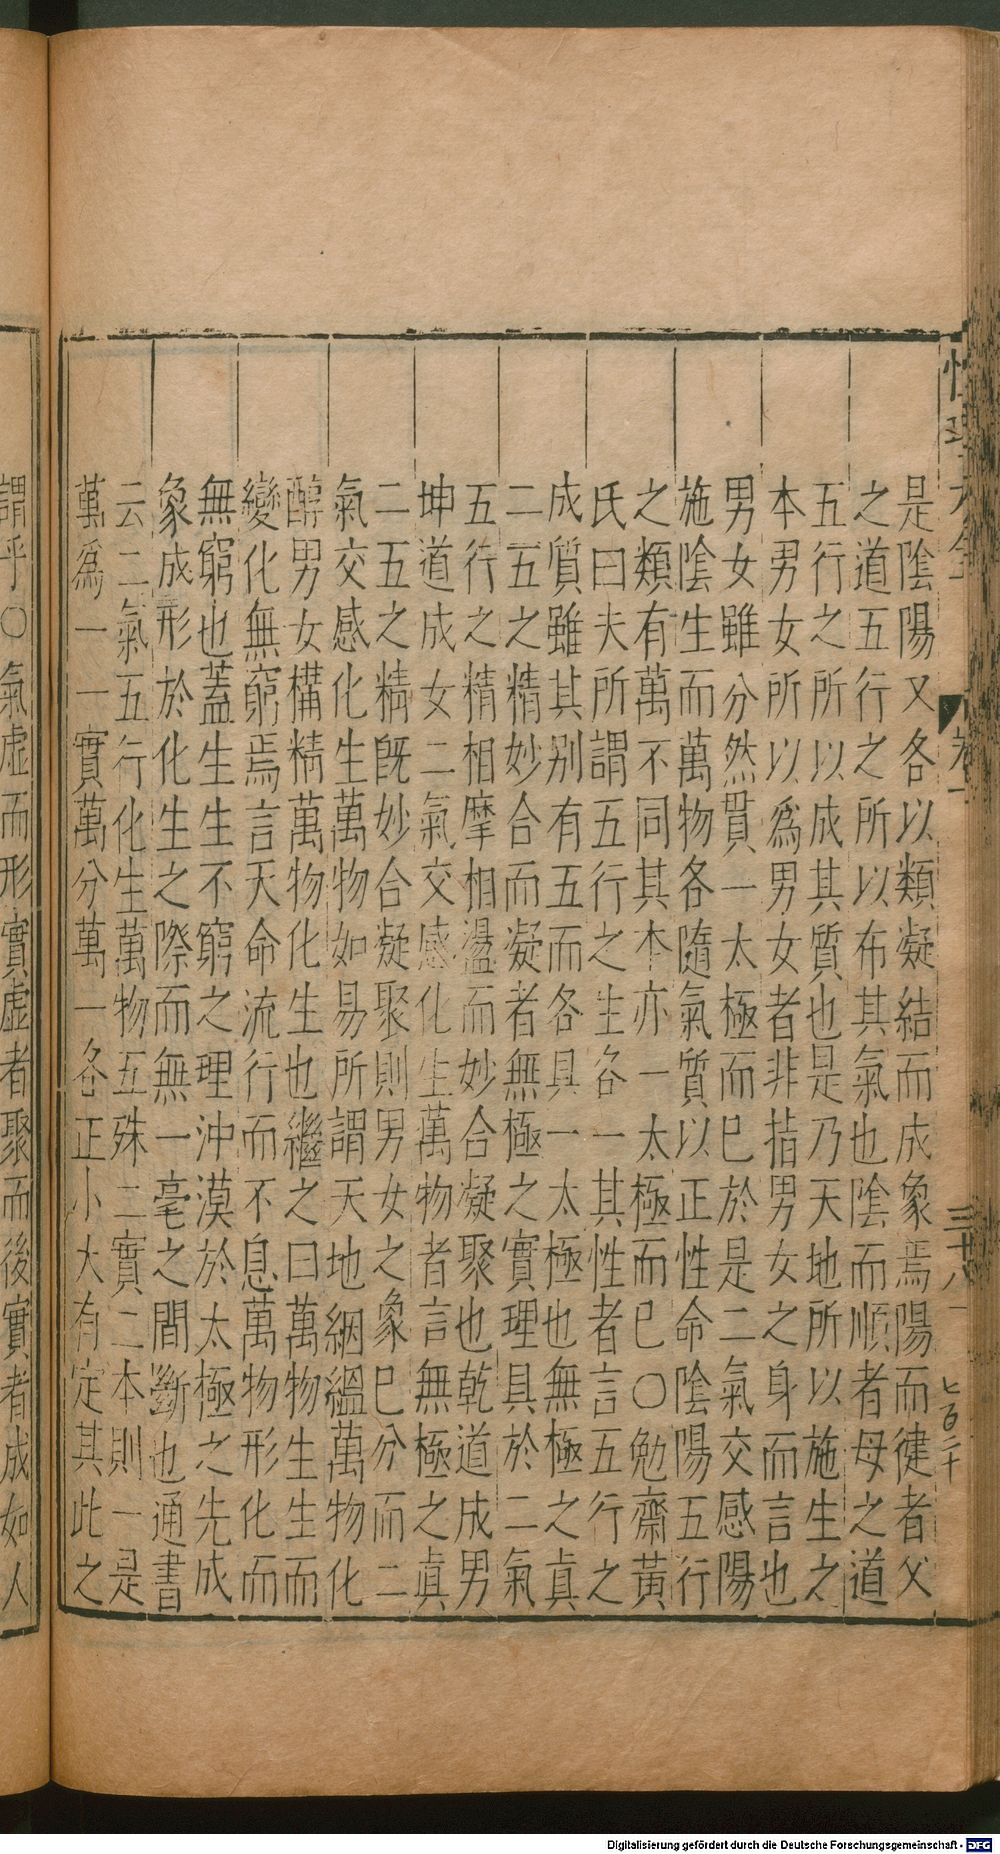 性理大全
卷一
三十八
七百二十
是陰陽又各以類凝結而成象焉陽而健者父
之道五行之所以布其氣也陰而順者母之道
五行之所以成其質也是乃天地所以施生之
本男女所以爲男女者非指男女之身而言也
男女雖分然貫一太極而已於是二氣交感陽
施陰生而萬物各隨氣質以正性命陰陽五行
之類有萬不同其本亦一太極而已○勉齋黃
氏曰夫所謂五行之生各一其性者言五行之
成質雖其別有五而各具一太極也無極之真
二五之精妙合而凝者無極之實理具於二氣
五行之精相摩相盪而妙合凝聚也乾道成男
坤道成女二氣交感化生萬物者言無極之眞
二五之精旣妙合凝聚則男女之象已分而二
氣交感化生萬物如易所謂天地絪縕萬物化
醇男女構精萬物化生也繼之曰萬物生生而
變化無窮焉言天命流行而不息萬物形化而
無窮也蓋生生不窮之理沖漠於太極之先成
象成形於化生之際而無一毫之間斷也通書
云二氣五行化生萬物五殊二實二本則一是
萬爲一一實萬分萬一各正小大有定其此之
謂乎○氣虛而形實虛者聚而後實者成如人
Digitalisierung gefördert durch die Deutsche Forschungsgemeinschaft - DFG